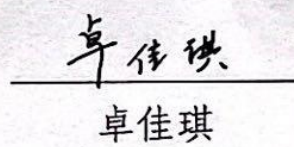 卓佳琪
卓佳琪